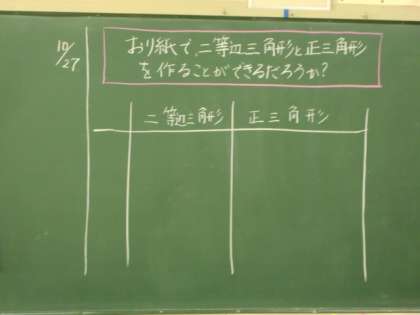 10/27
おり紙で、二等辺三角形と正三角形
を作ることができるだろうか?
二等辺三角形 正三角形